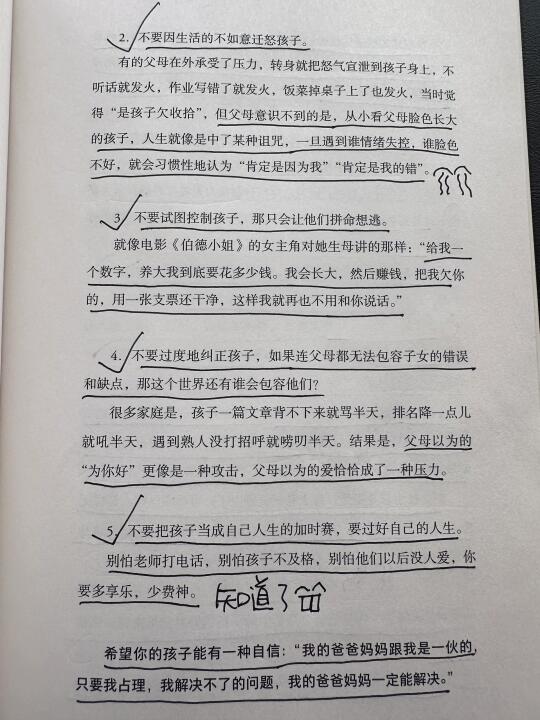 2. 不要因生活的不如意迁怒孩子。
有的父母在外承受了压力，转身就把怒气宣泄到孩子身上，不
听话就发火，作业写错了就发火，饭菜掉桌子上了也发火，当时觉
得“是孩子欠收拾”，但父母意识不到的是，从小看父母脸色长大
的孩子，人生就像是中了某种诅咒，一旦遇到谁情绪失控，谁脸色
不好，就会习惯性地认为“肯定是因为我”“肯定是我的错”。
3. 不要试图控制孩子，那只会让他们拼命想逃。
就像电影《伯德小姐》的女主角对她生母讲的那样：“给我一
个数字，养大我到底要花多少钱。我会长大，然后赚钱，把我欠你
的，用一张支票还干净，这样我就再也不用和你说话。”
4. 不要过度地纠正孩子，如果连父母都无法包容子女的错误
和缺点，那这个世界还有谁会包容他们？
很多家庭是，孩子一篇文章背不下来就骂半天，排名降一点儿
就吼半天，遇到熟人没打招呼就唠叨半天。结果是，父母以为的
“为你好”更像是一种攻击，父母以为的爱恰恰成了一种压力。
5. 不要把孩子当成自己人生的加时赛，要过好自己的人生。
别怕老师打电话，别怕孩子不及格，别怕他们以后没人爱，你
要多享乐，少费神。 知道了
希望你的孩子能有一种自信：“我的爸爸妈妈跟我是一伙的，
只要我占理，我解决不了的问题，我的爸爸妈妈一定能解决。”